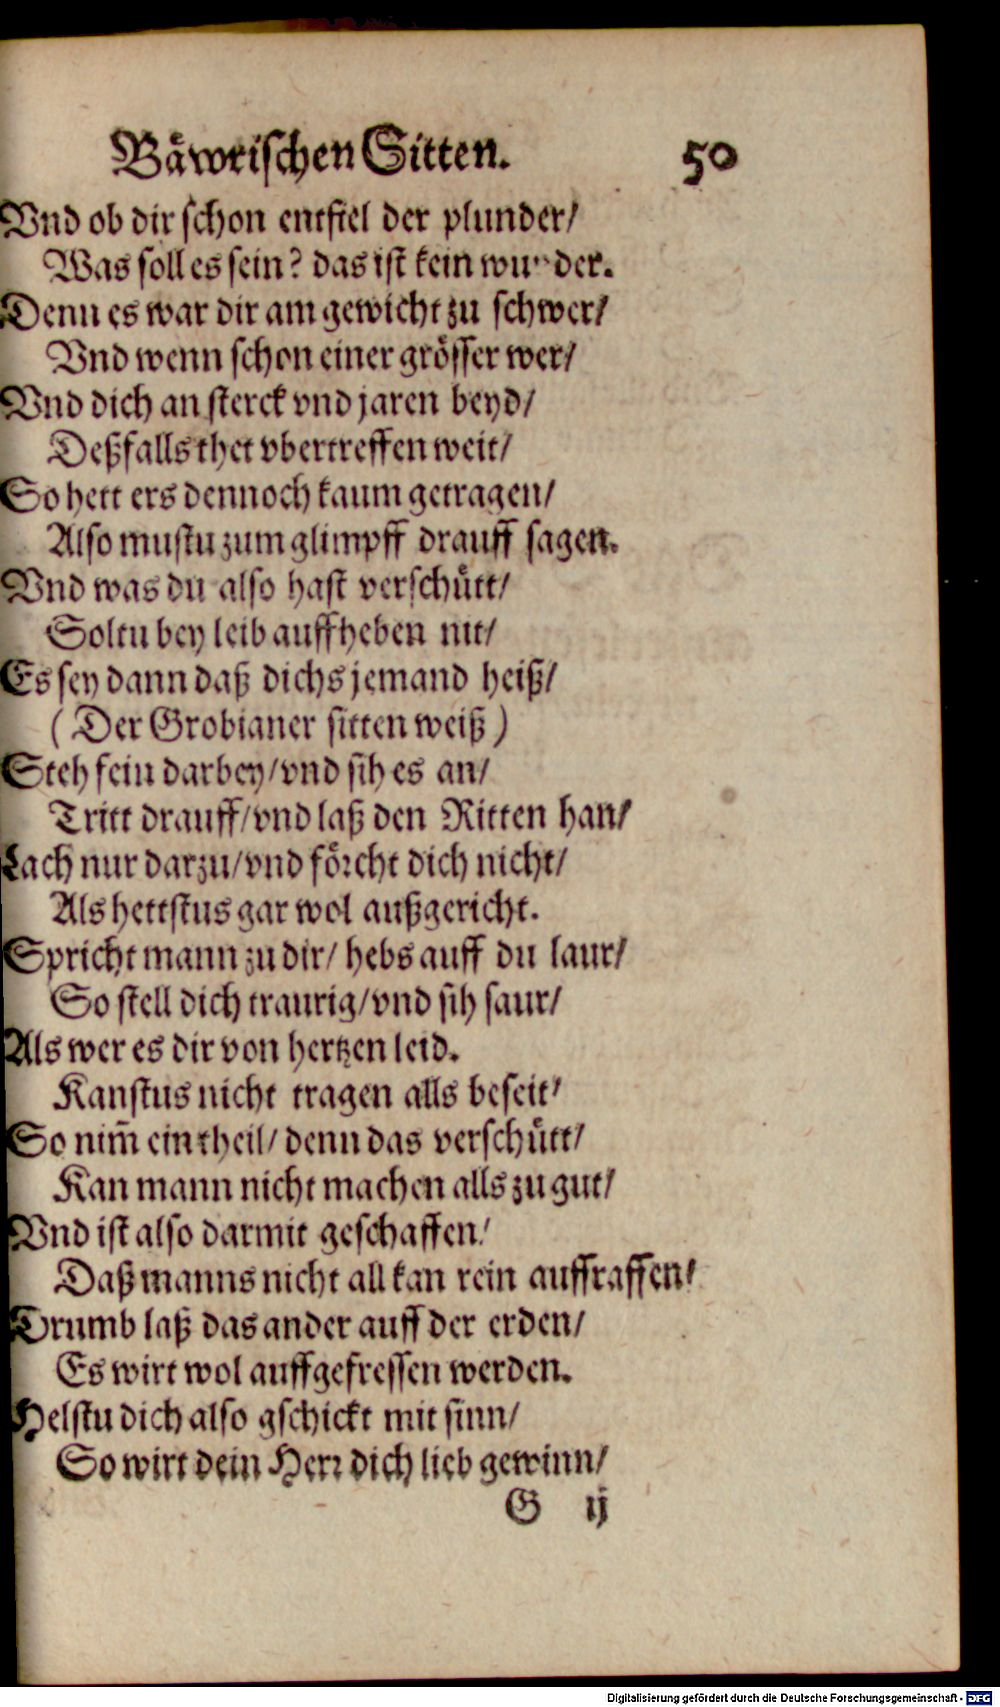 Bäwrischen Sitten. 50
Vnd ob dir schon entfiel der plunder/
Was soll es sein? das ist kein wunder.
Denn es war dir am gewicht zu schwer/
Vnd wenn schon einer grösser wer/
Vnd dich an sterck vnd jaren beyd/
Deßfalls thet vbertreffen weit/
So hett ers dennoch kaum getragen/
Also mustu zum glimpff drauff sagen.
Vnd was du also hast verschütt/
Soltu bey leib auffheben nit/
Es sey dann daß dichs jemand heiß/
(Der Grobianer sitten weiß)
Steh fein darbey/vnd sih es an/
Tritt drauff/vnd laß den Ritten han/
Lach nur darzu/vnd förcht dich nicht/
Als hettstus gar wol außgericht.
Spricht mann zu dir/ hebs auff du laur/
So stell dich traurig/vnd sih saur/
Als wer es dir von hertzen leid.
Kanstus nicht tragen alls beseit/
So nim̄ ein theil/ denn das verschütt/
Kan mann nicht machen alls zu gut/
Vnd ist also darmit geschaffen/
Daß manns nicht all kan rein auffraffen/
Drumb laß das ander auff der erden/
Es wirt wol auffgefressen werden.
Helstu dich also gschickt mit sinn/
So wirt dein Herr dich lieb gewinn/
G ij
Digitalisierung gefördert durch die Deutsche Forschungsgemeinschaft - DFG